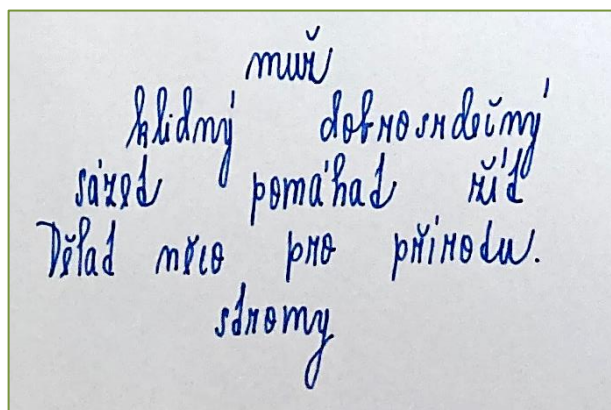 muž
klidný dobrosrdečný
sázet pomáhat žít
Dělat něco pro přírodu.
stromy